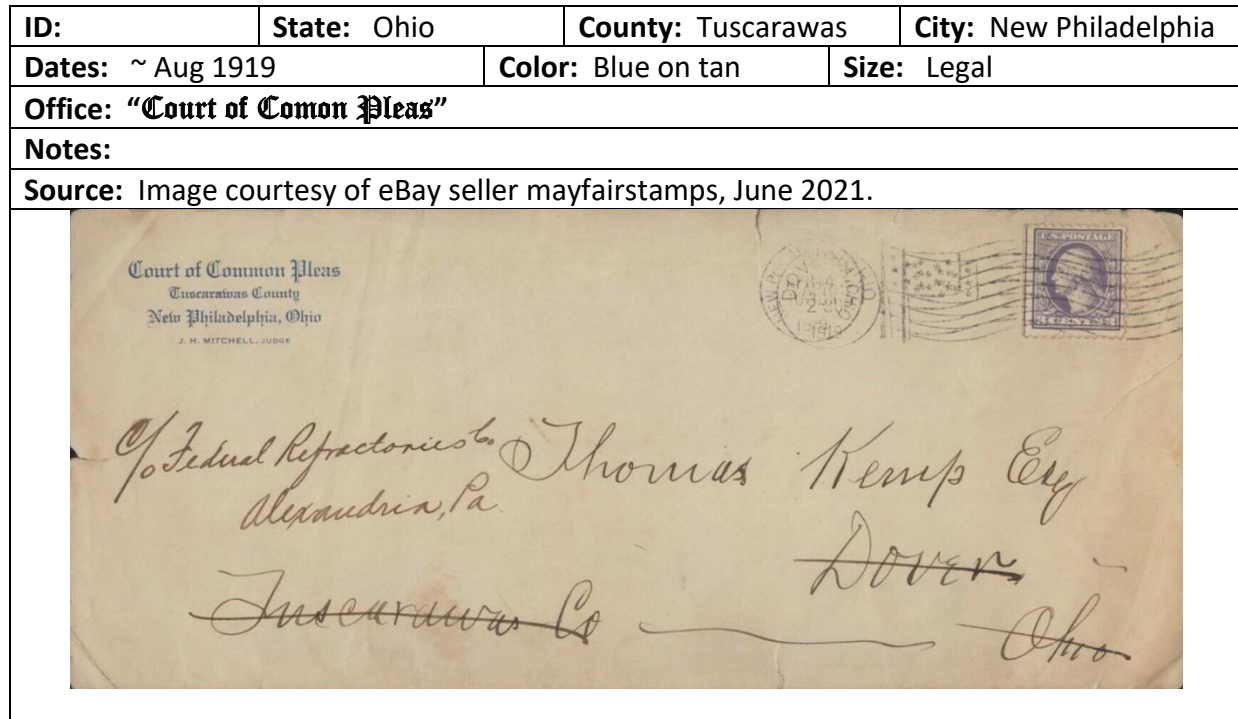 ID: State: Ohio County: Tuscarawas City: New Philadelphia
Dates: ~ Aug 1919 Color: Blue on tan Size: Legal
Office: “Court of Comon Pleas”
Notes:
Source: Image courtesy of eBay seller mayfairstamps, June 2021.
Court of Common Pleas
Tuscarawas County
New Philadelphia, Ohio
J. H. MITCHELL, JUDGE
U.S. POSTAGE
CENTS
c/o Federal Refractories Co
Alexandria, Pa
Thomas Kemp Esq
Dover
Tuscarawas Co
Ohio